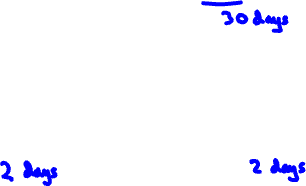 30 days
2 days
2 days